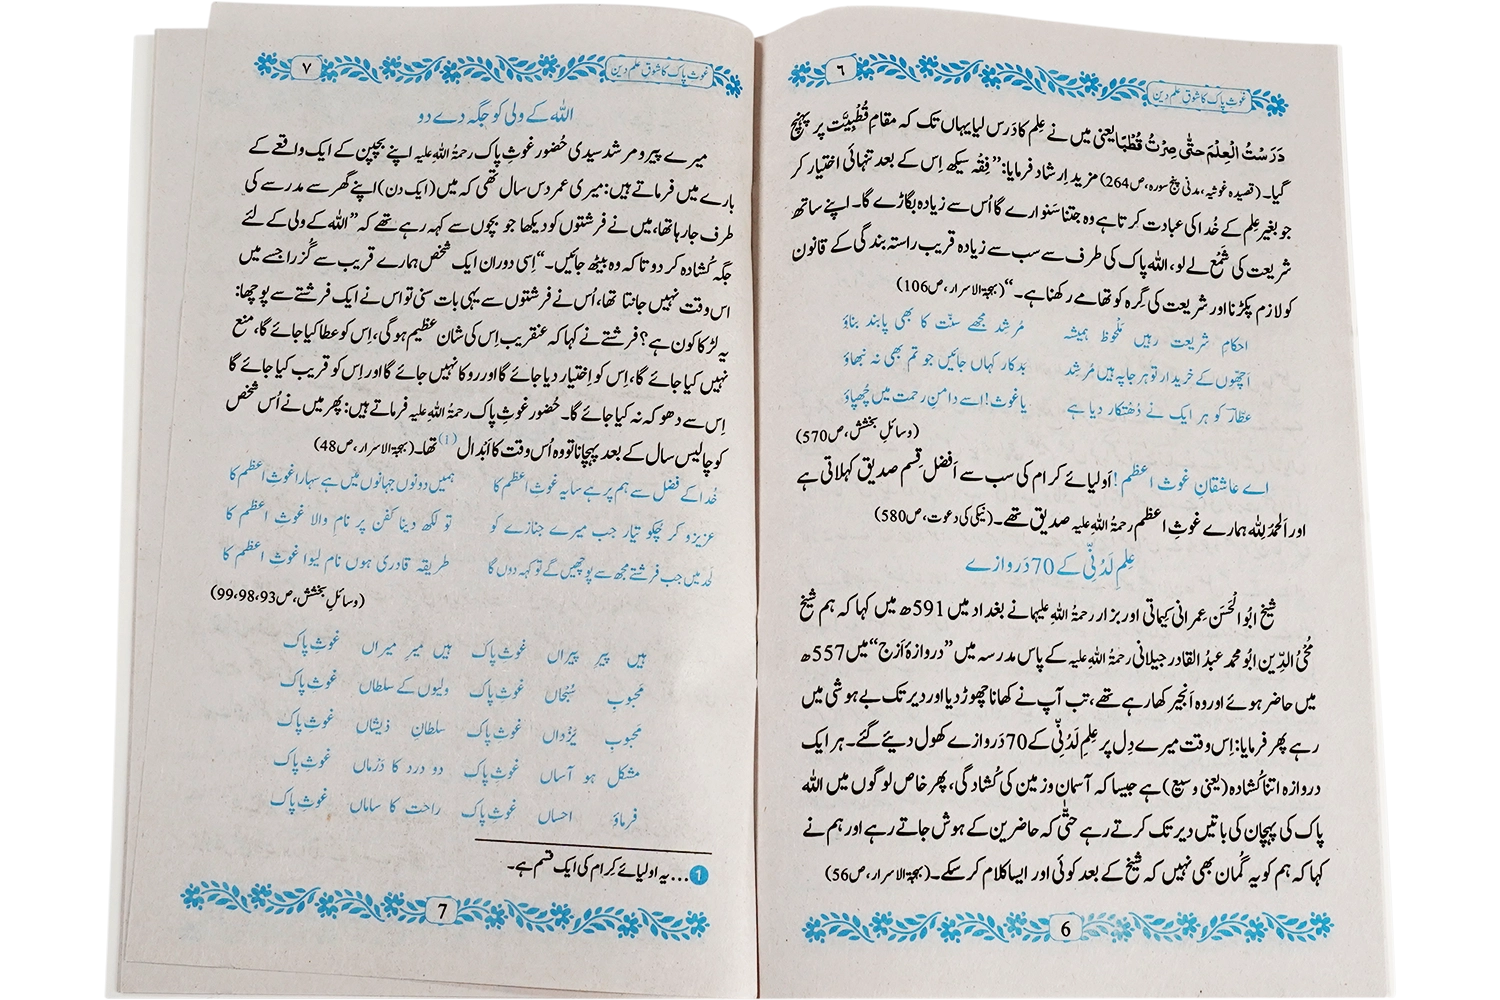 ٦
غوثِ پاک کا شوقِ علمِ دین
دَرَسْتُ الْعِلْمَ حتّٰی صِرْتُ قُطْبًا یعنی میں نے عِلم کا دَرس لیا یہاں تک کہ مقامِ قُطْبِیَّت پر پہنچ
گیا۔ (قصیدہ غوثیہ، مدنی پنج سورہ، ص264) مزید اِرشاد فرمایا: ”فِقْہ سیکھ اِس کے بعد تنہائی اختیار کر
جو بغیر عِلم کے خُدا کی عبادت کرتا ہے وہ جتنا سَنوارے گا اُس سے زیادہ بگاڑے گا۔ اپنے ساتھ
شریعت کی شَمْع لے لو، اللہ پاک کی طرف سے سب سے زیادہ قریب راستہ بندگی کے قانون
کو لازم پکڑنا اور شریعت کی گِرہ کو تھامے رکھنا ہے۔“ (بہجۃ الاسرار، ص106)
احکامِ شریعت رہیں مَلْحوظ ہمیشہ مُرشد مجھے سنّت کا بھی پابند بناؤ
اَچّھوں کے خریدار تو ہر جا پہ ہیں مُرشِد بدکار کہاں جائیں جو تم بھی نہ نبھاؤ
عطّار کو ہر ایک نے دُھتکار دیا ہے یا غوث! اسے دامنِ رحمت میں چُھپاؤ
(وسائلِ بخشش، ص570)
اے عاشقانِ غوث اعظم! اَولیائے کرام کی سب سے اَفضل قِسم صدیق کہلاتی ہے
اور اَلحمدُ لِلّٰہ ہمارے غوثِ اعظم رحمۃُ اللہِ علیہ صدیق تھے۔ (نیکی کی دعوت، ص580)
عِلمِ لَدُنّی کے 70 دَروازے
شیخ ابوالْحَسَن عِمرانی کیماتی اور بزار رحمۃُ اللہِ علیہما نے بغداد میں 591ھ میں کہا کہ ہم شیخ
مُحْیُ الدِّین ابو محمد عبدُ القادر جیلانی رحمۃُ اللہِ علیہ کے پاس مدرسہ میں ”دروازہ ٔ اَزَج“ میں 557ھ
میں حاضر ہوئے اور وہ اَنجیر کھا رہے تھے، تب آپ نے کھانا چھوڑ دیا اور دیر تک بے ہوشی میں
رہے پھر فرمایا: اِس وقت میرے دِل پر عِلمِ لَدُنّی کے 70 دَروازے کھول دیئے گئے۔ ہر ایک
دروازہ اتنا کُشادہ (یعنی وسیع) ہے جیسا کہ آسمان و زمین کی کُشادگی، پھر خاص لوگوں میں اللہ
پاک کی پہچان کی باتیں دیر تک کرتے رہے حتّٰی کہ حاضرین کے ہوش جاتے رہے اور ہم نے
کہا کہ ہم کو یہ گُمان بھی نہیں کہ شیخ کے بعد کوئی اور ایسا کلام کر سکے۔ (بہجۃ الاسرار، ص56)
6
٧
غوثِ پاک کا شوقِ علمِ دین
اللہ کے ولی کو جگہ دے دو
میرے پیر و مرشد سیدی حُضور غوثِ پاک رحمۃُ اللہِ علیہ اپنے بچپن کے ایک واقعے کے
بارے میں فرماتے ہیں: میری عمر دس سال تھی کہ میں (ایک دن) اپنے گھر سے مدرسے کی
طرف جا رہا تھا، میں نے فرشتوں کو دیکھا جو بچوں سے کہہ رہے تھے کہ ”اللہ کے ولی کے لئے
جگہ کُشادہ کر دو تا کہ وہ بیٹھ جائیں۔“ اِسی دوران ایک شخص ہمارے قریب سے گُزرا جسے میں
اس وقت نہیں جانتا تھا، اُس نے فرشتوں سے یہی بات سنی تو اس نے ایک فرشتے سے پوچھا:
یہ لڑکا کون ہے؟ فرشتے نے کہا کہ عنقریب اِس کی شان عظیم ہو گی، اِس کو عطا کیا جائے گا، منع
نہیں کیا جائے گا، اِس کو اِختیار دیا جائے گا اور روکا نہیں جائے گا اور اِس کو قریب کیا جائے گا
اِس سے دھوکہ نہ کیا جائے گا۔ حُضور غوثِ پاک رحمۃُ اللہِ علیہ فرماتے ہیں: پھر میں نے اُس شخص
کو چالیس سال کے بعد پہچانا تو وہ اُس وقت کا اَبْدال (1) تھا۔ (بہجۃ الاسرار، ص48)
خُدا کے فضل سے ہم پر ہے سایہ غوثِ اعظم کا ہمیں دونوں جہانوں میں ہے سہارا غوثِ اعظم کا
عزیزو کر چُکو تیّار جب میرے جنازے کو تو لکھ دینا کفن پر نامِ والا غوثِ اعظم کا
لَحَد میں جب فرشتے مجھ سے پوچھیں گے تو کہہ دوں گا طریقہ قادری ہوں نام لیوا غوثِ اعظم کا
(وسائلِ بخشش، ص93، 98، 99)
ہیں پیرِ پیراں غوثِ پاک ہیں میرِ میراں غوثِ پاک
مَحبوبِ سُبْحاں غوثِ پاک ولیوں کے سلطاں غوثِ پاک
مَحبوبِ یَزْداں غوثِ پاک سلطانِ ذیشاں غوثِ پاک
مشکل ہو آساں غوثِ پاک دو درد کا دَرْماں غوثِ پاک
فرماؤ احساں غوثِ پاک راحت کا ساماں غوثِ پاک
1 ... یہ اولیائے کِرام کی ایک قسم ہے۔
7